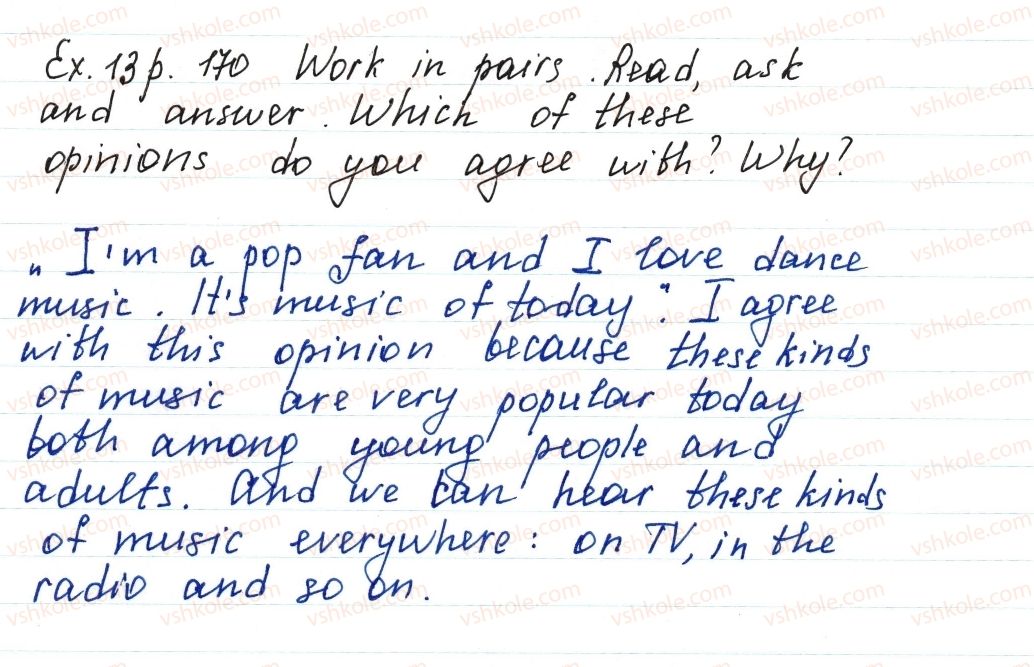 Ex. 13 p. 170 Work in pairs. Read, ask
and answer. Which of these
opinions do you agree with? Why?
„I'm a pop fan and I love dance
music. It's music of today". I agree
with this opinion because these kinds
of music are very popular today
both among young people and
adults. And we can hear these kinds
of music everywhere: on TV, in the
radio and so on.